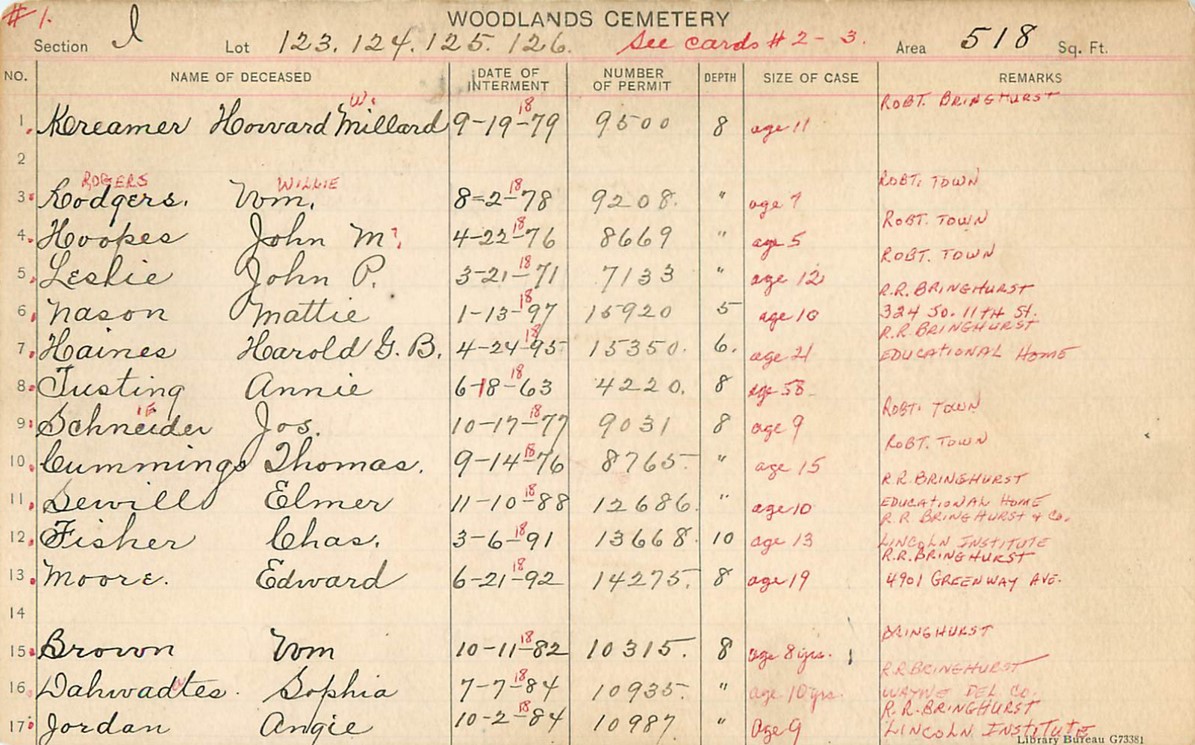 #1.
WOODLANDS CEMETERY
Section I Lot 123. 124. 125. 126. See cards #2-3. Area 518 Sq. Ft.
NO. NAME OF DECEASED DATE OF INTERMENT NUMBER OF PERMIT DEPTH SIZE OF CASE REMARKS
W. 18 ROBT. BRINGHURST
1. Kreamer Howard Millard 9-19-79 9500 8 age 11
2
ROGERS WILLIE 18 ROBT. TOWN
3. Rodgers. Wm. 8-2-78 9208. " age 7
18 ROBT. TOWN
4. Hoopes John M. 4-22-76 8669 " age 5
18 ROBT. TOWN
5. Leslie John P. 3-21-71 7133 " age 12
18 R.R. BRINGHURST
6. Nason Mattie 1-13-97 15920 5 age 10 324 So. 11TH St.
18 R.R. BRINGHURST
7. Haines Harold G. B. 4-24-95 15350. 6. age 21 EDUCATIONAL HOME
18
8. Tusting Annie 6-18-63 4220. 8 age 58
IE 18 ROBT. TOWN
9. Schneider Jos. 10-17-77 9031 8 age 9
18 ROBT. TOWN
10. Cummings Thomas. 9-14-76 8765. " age 15
R.R. BRINGHURST
11. Sewill Elmer 11-10-88 12686. " age 10 EDUCATIONAL HOME
18 R.R. BRINGHURST & CO.
12. Fisher Chas. 3-6-91 13668. 10 age 13 LINCOLN INSTITUTE
18 R.R. BRINGHURST
13. Moore. Edward 6-21-92 14275. 8 age 19 4901 GREENWAY AVE.
14
18 BRINGHURST
15. Brown Wm 10-11-82 10315. 8 age 8 yrs.
18 R.R. BRINGHURST
16. Dahwadtes. Sophia 7-7-84 10935. " age 10 yrs. WAYNE DEL CO.
18 R.R. BRINGHURST
17. Jordan Angie 10-2-84 10987. " Age 9 LINCOLN INSTITUTE
Library Bureau G73381